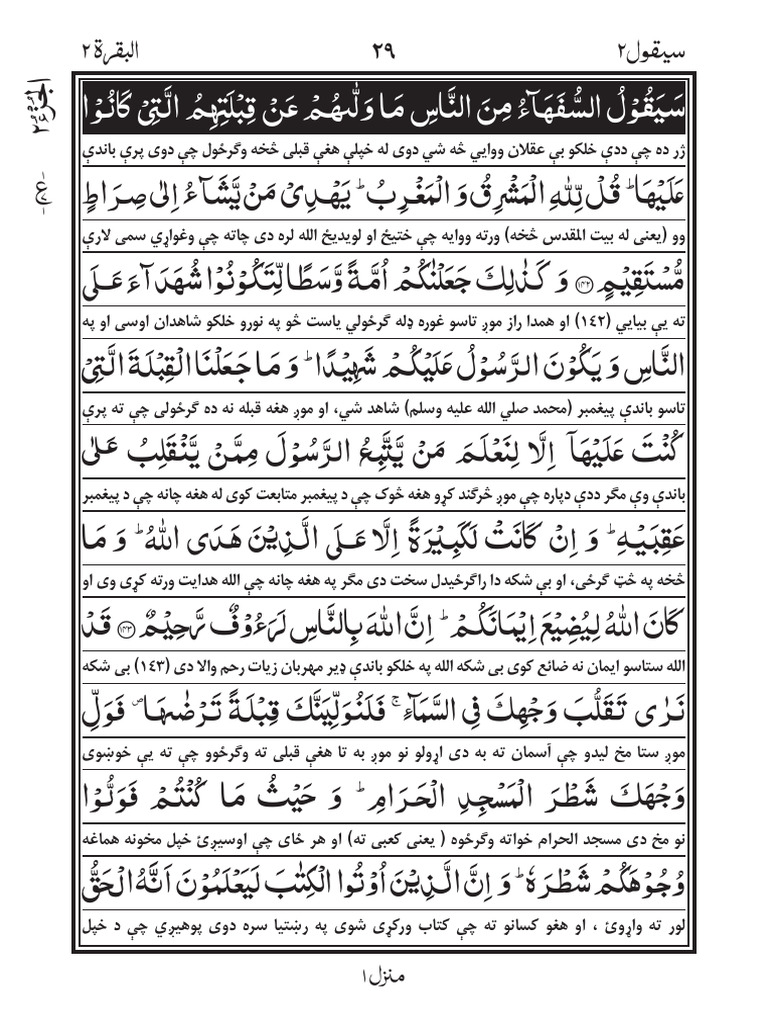 سيقول٢ ٢٩ البقرة ٢
الجزء ٢
سَيَقُوْلُ السُّفَهَآءُ مِنَ النَّاسِ مَا وَلّٰىهُمْ عَنْ قِبْلَتِهِمُ الَّتِيْ كَانُوْا
ژر ده چې ددې خلکو بې عقلان ووايي څه شي دوی له خپلې هغې قبلې څخه وګرځول چې دوی پرې باندې
عَلَيْهَا ؕ قُلْ لِّلّٰهِ الْمَشْرِقُ وَ الْمَغْرِبُ ؕ يَهْدِيْ مَنْ يَّشَآءُ اِلٰى صِرَاطٍ
وو (يعنى له بيت المقدس څخه) ورته ووايه چې ختيځ او لويديځ الله لره دى چاته چې وغواړي سمى لارې
مُّسْتَقِيْمٍ ﴿١٤٢﴾ وَ كَذٰلِكَ جَعَلْنٰكُمْ اُمَّةً وَّسَطًا لِّتَكُوْنُوْا شُهَدَآءَ عَلَى
ته يې بيايي (١٤٢) او همدا راز موږ تاسو غوره ډله ګرځولي ياست څو په نورو خلکو شاهدان اوسى او په
النَّاسِ وَ يَكُوْنَ الرَّسُوْلُ عَلَيْكُمْ شَهِيْدًا ؕ وَ مَا جَعَلْنَا الْقِبْلَةَ الَّتِيْ
تاسو باندې پيغمبر (محمد صلي الله عليه وسلم) شاهد شي، او موږ هغه قبله نه ده ګرځولى چې ته پرې
كُنْتَ عَلَيْهَاۤ اِلَّا لِنَعْلَمَ مَنْ يَّتَّبِعُ الرَّسُوْلَ مِمَّنْ يَّنْقَلِبُ عَلٰى
باندې وې مګر ددې دپاره چې موږ څرګند کړو هغه څوک چې د پيغمبر متابعت کوى له هغه چانه چې د پيغمبر
عَقِبَيْهِ ؕ وَ اِنْ كَانَتْ لَكَبِيْرَةً اِلَّا عَلَى الَّذِيْنَ هَدَى اللّٰهُ ؕ وَ مَا
څخه په څټ ګرځى، او بې شکه دا راګرځيدل سخت دى مګر په هغه چانه چې الله هدايت ورته کړى وى او
كَانَ اللّٰهُ لِيُضِيْعَ اِيْمَانَكُمْ ؕ اِنَّ اللّٰهَ بِالنَّاسِ لَرَءُوْفٌ رَّحِيْمٌ ﴿١٤٣﴾ قَدْ
الله ستاسو ايمان نه ضائع کوى بى شکه الله په خلکو باندې ډير مهربان زيات رحم والا دى (١٤٣) بى شکه
نَرٰى تَقَلُّبَ وَجْهِكَ فِي السَّمَآءِ ۚ فَلَنُوَلِّيَنَّكَ قِبْلَةً تَرْضٰىهَا ۪ فَوَلِّ
موږ ستا مخ ليدو چې آسمان ته به دى اړولو نو موږ به تا هغې قبلى ته وګرځوو چې ته يې خوښوى
وَجْهَكَ شَطْرَ الْمَسْجِدِ الْحَرَامِ ؕ وَ حَيْثُ مَا كُنْتُمْ فَوَلُّوْا
نو مخ دى مسجد الحرام خواته وګرځوه ( يعنى کعبى ته) او هر ځاى چې اوسيږئ خپل مخونه هماغه
وُجُوْهَكُمْ شَطْرَهٗ ؕ وَ اِنَّ الَّذِيْنَ اُوْتُوا الْكِتٰبَ لَيَعْلَمُوْنَ اَنَّهُ الْحَقُّ
لور ته واړوئ ، او هغو کسانو ته چې کتاب ورکړى شوى په رښتيا سره دوى پوهيږي چې د خپل
منزل١